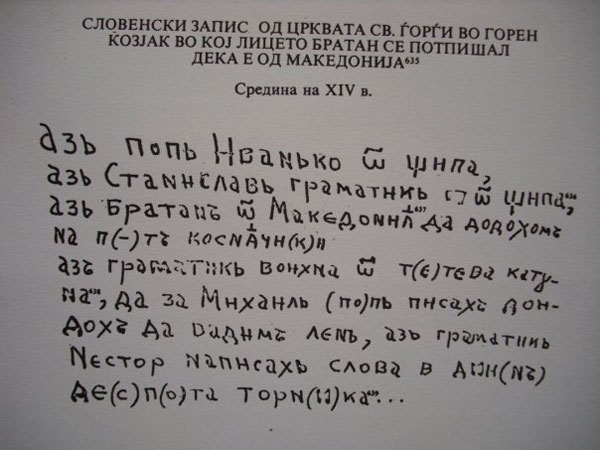 СЛОВЕНСКИ ЗАПИС ОД ЦРКВАТА СВ. ЃОРЃИ ВО ГОРЕН
КОЗЈАК ВО КОЈ ЛИЦЕТО БРАТАН СЕ ПОТПИШАЛ
ДЕКА Е ОД МАКЕДОНИЈА⁶³⁵
Средина на XIV в.
азь попь Иванько ѿ щипа,
азь Станиславь граматикь ѿ щипа,
азь Братанъ ѿ Македониꙗ⁶³⁷ да додохомъ
на п(-)тъ
азъ граматикь ѿ т(е)тева кату-
на, да за Михаиль (по)пь писахъ дои-
дохъ да вадимъ ленъ, азь граматикь
Nестор написахь слова в д҃н(нъ)
де(с)п(о)та